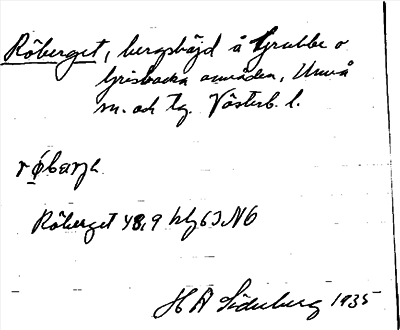 Röberget, bergshöjd å Grubbe o
Grisbacka områden, Umeå
sn. och tg. Västerb. l.
røbærjə
Röberget 48,9 blg 63 NO
H A Söderberg 1935